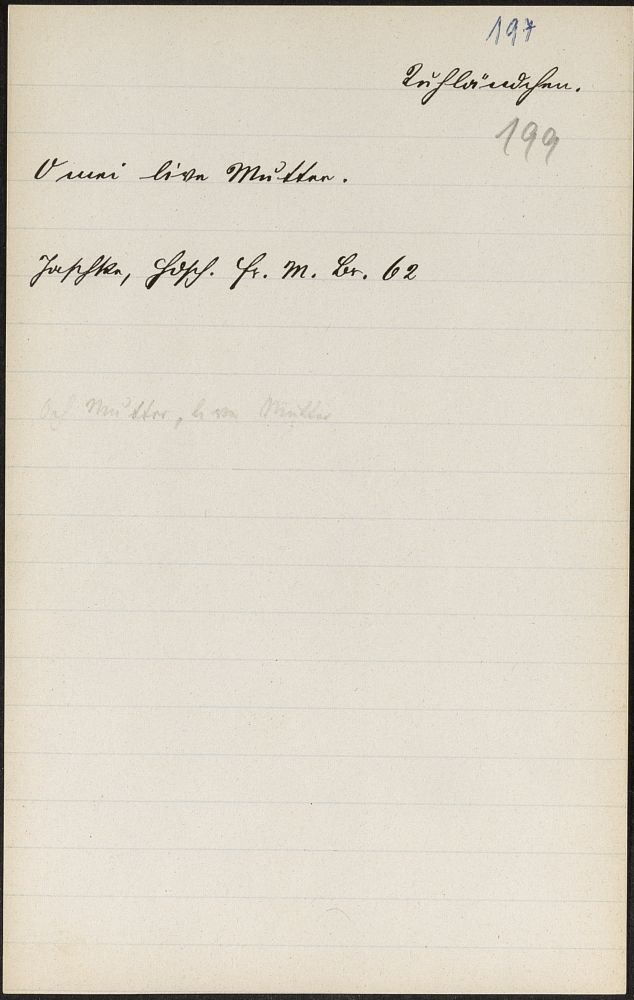 197
Kuhländchen.
199
O mei live Mutter.
Jaschke, Hdsch. Fr. M. Br. 62
Mutter, live Mutter